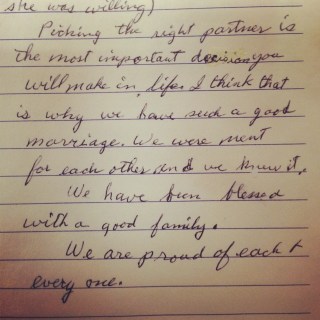 she was willing)
Picking the right partner is
the most important decision you
will make in life. I think that
is why we have such a good
marriage. We were ment
for each other and we knew it.
We have been blessed
with a good family.
We are proud of each +
every one.